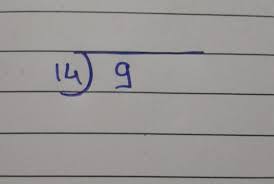 14) 9